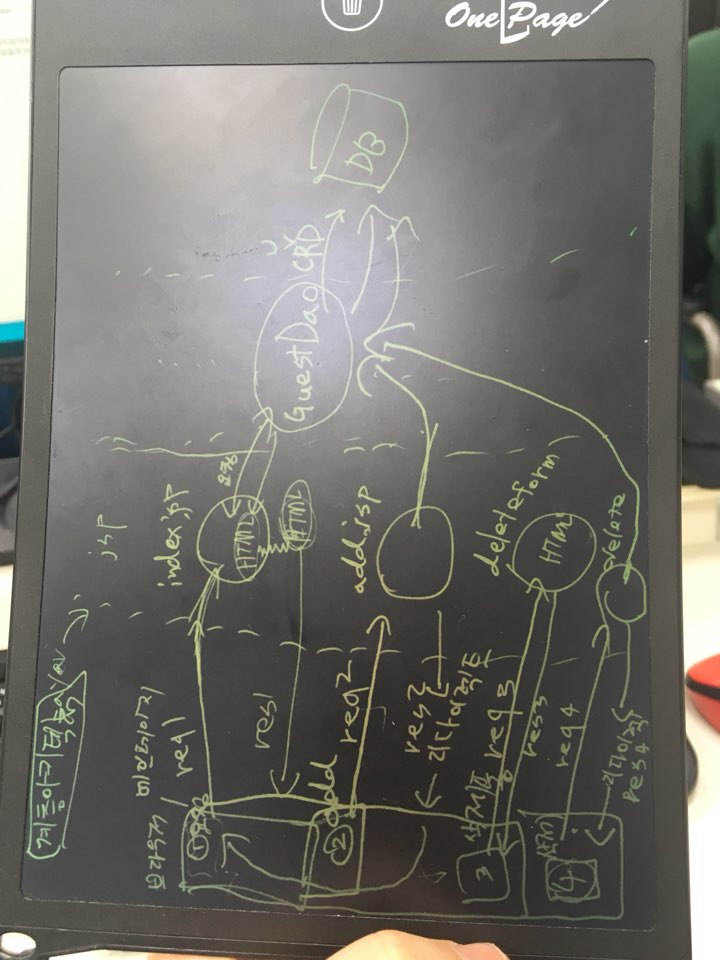 계층아키텍쳐
jsp
브라우저
메인페이지
req1
index.jsp
①
요청
HTML
res1
HTML
GuestDao
CRD
U
DB
② add
req2
add.jsp
res2
리다이렉트
3
삭제폼
req3
deleteform
res3
HTML
4
삭제
req4
delete
리다이렉
res4
One Page